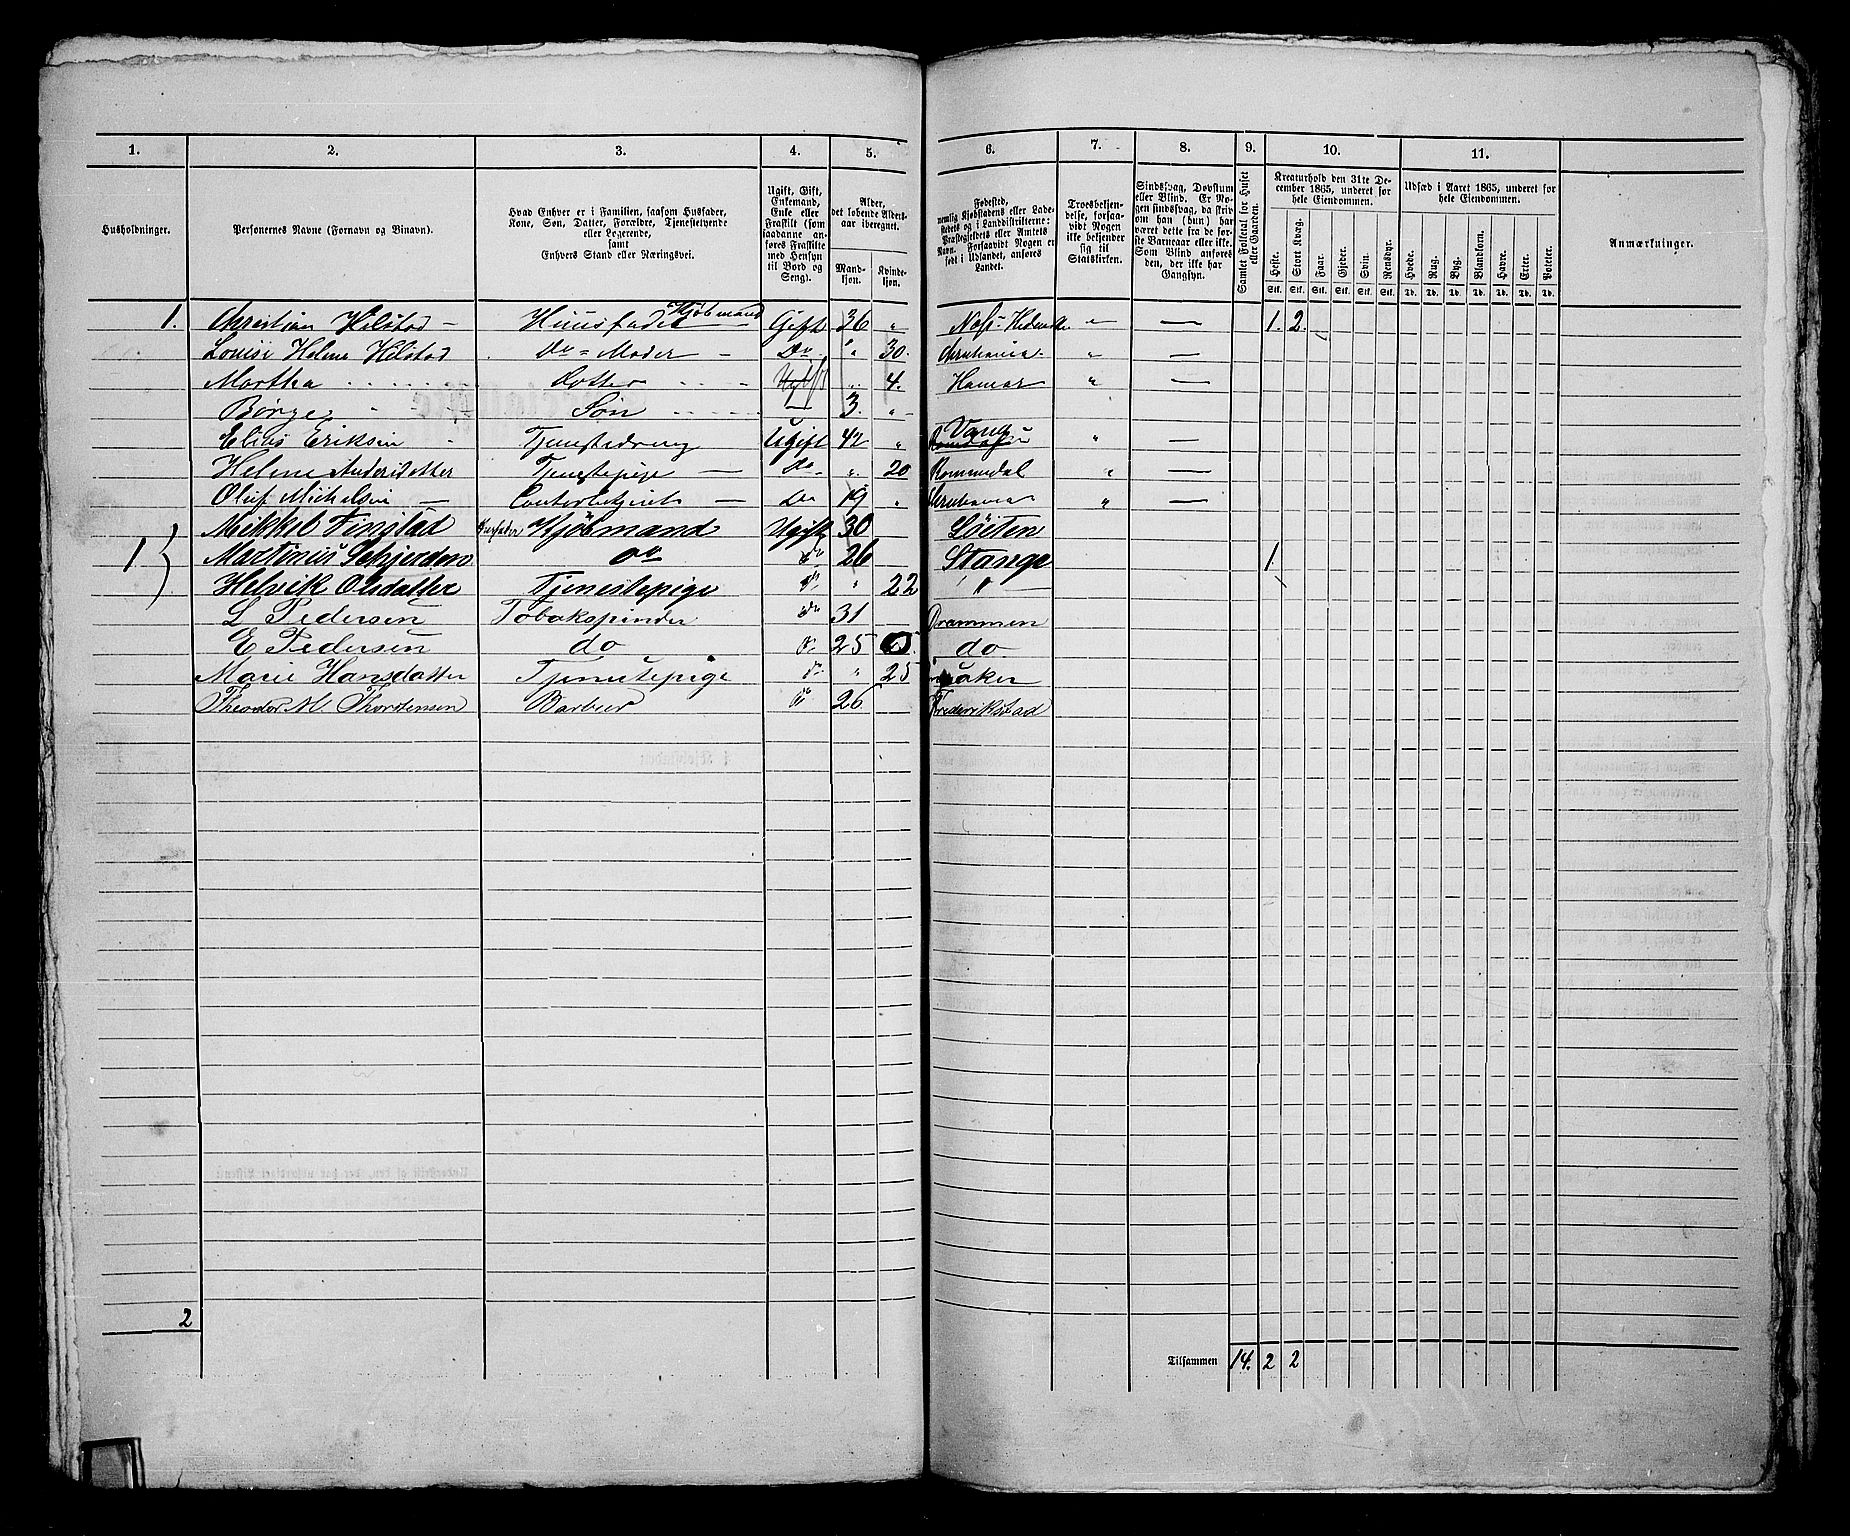 1. 2. 3. 4. 5. 6. 7. 8. 9. 10. 11.
Husholdninger. Personernes Navne (Fornavn og Binavn). Hvad Enhver er i Familien, saasom Husfader, Kone, Søn, Datter, Forældre, Tjenestetyende eller Logerende, samt Enhvers Stand eller Næringsvei. Ugift, Gift, Enkemand, Enke eller Fraskilt (som saadanne anføres Fraskilte med Hensyn til Bord og Seng). Alder, det løbende Alders-aar iberegnet. Mandkjøn. Kvindekjøn. Fødested, nemlig Kjøbstadens eller Ladestedets og i Landdistrikterne: Præstegjeldets eller Amtets Navn. Forsaavidt Nogen er født i Udlandet, anføres Landet. Troesbekjendelse, forsaavidt Nogen ikke bekjender sig til Statskirken. Sindssvag, Døvstum eller Blind. Er Nogen sindssvag, da skrives om han (hun) har været dette fra de første Barneaar eller ikke. Som Blind anføres den, der ikke har Gangsyn. Samlet Folketal for Huset eller Gaarden. Kreaturhold den 31te December 1865, underet for hele Eiendommen. Udsæd i Aaret 1865, underet for hele Eiendommen. Anmærkninger.
Heste. Stort Kvæg. Faar. Gjeder. Svin. Rensdyr. Hvede. Rug. Byg. Blandkorn. Havre. Erter. Poteter.
Stk. Stk. Stk. Stk. Stk. Stk. Td. Td. Td. Td. Td. Td. Td.
1. Christian Hilstad – Huusfader Kjøbmand Gift 36 " " — 1. 2.
Louise Helene Hilstad Do = Moder – Do " 30. Christiania " —
Martha Dotter " 4. Hamar " —
Børge Søn — 3. "
Elias Eriksen Tjenestedreng Ugift 42 " Vang " —
Helene Andersdatter Tjenestepige — Do " 20 Rommedal " —
Oluf Michelsen — Contorbetjent – Do 19 " Christiania " —
Mikkel Finstad Huusfader Kjøbmand Ugift 30 Løiten
1 Martinus Schjerden do do 26 Stange 1.
Helvik Olsdatter Tjenestepige do " 22 "
L Pedersen Tobakspinder do 31 Drammen
E Pedersen do do 25 do
Marie Hansdatter Tjenestepige do " 25
Theodor M Thorstensen Barbeer do 26 Frederikstad
2
Tilsammen 14. 2 2